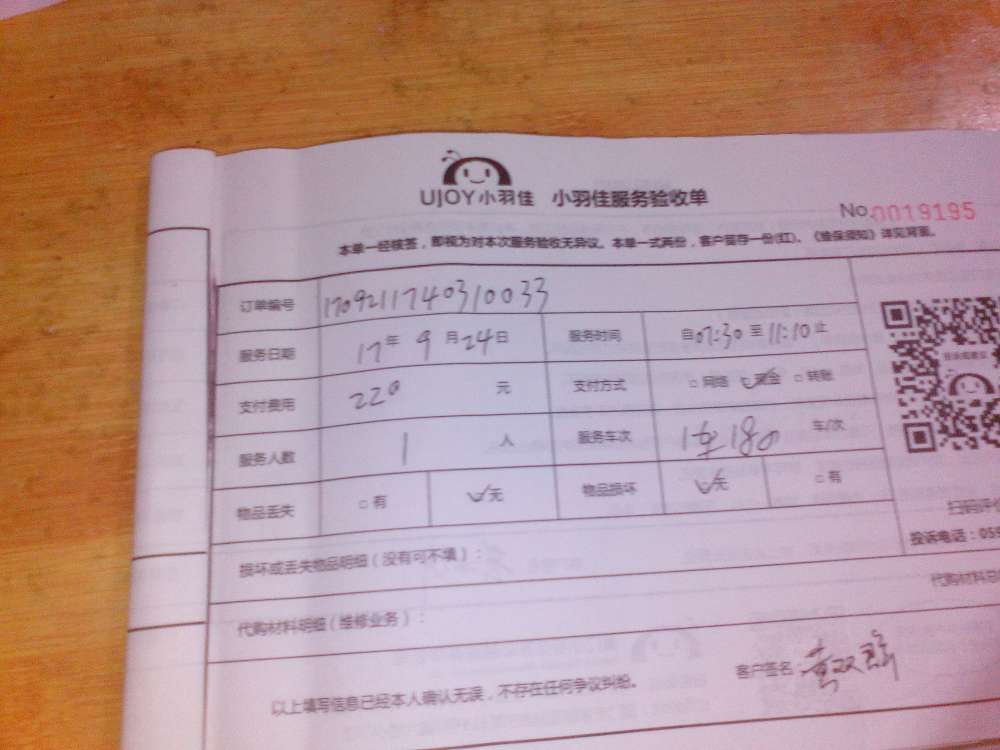 UJOY小羽佳 小羽佳服务验收单
No.0019195
本单一经核答，即视为对本次服务验收无异议。本单一式两份，客户留存一份(红)。《维保须知》详见背面。
订单编号 1709211740310033
服务日期 17年 9月24日 服务时间 自07:30至11:10止
支付费用 220 元 支付方式 □网络 ☑现金 □转账
服务人数 1 人 服务车次 180 车/次
物品丢失 □有 ☑无 物品损坏 ☑无 □有
损坏或丢失物品明细（没有可不填）：
扫码评
投诉电话：059
代购材料明细（维修业务）：
代购材料总
以上填写信息已经本人确认无误，不存在任何争议纠纷。
客户签名：黄双